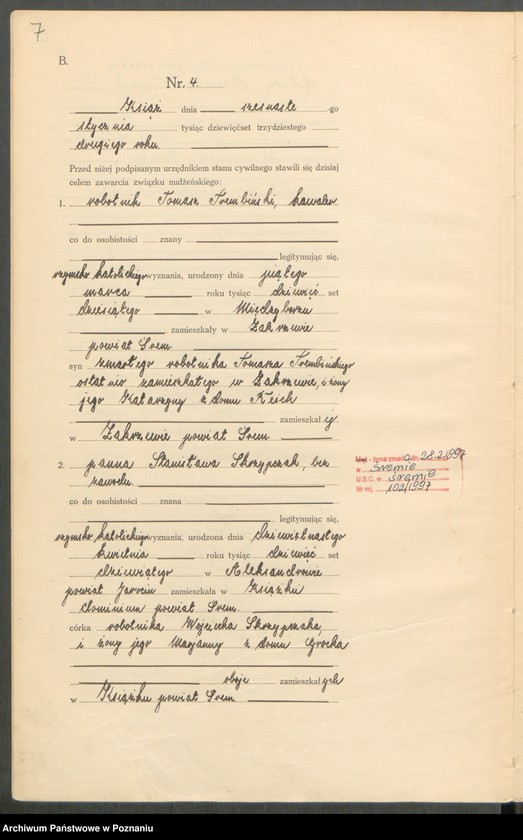 7
B.
Nr. 4.
Książ dnia szesnaste go
stycznia tysiąc dziewięćset trzydziestego
drugiego roku.
Przed niżej podpisanym urzędnikiem stanu cywilnego stawili się dzisiaj
celem zawarcia związku małżeńskiego:
1. robotnik Tomasz Trembiński, kawaler
co do osobistości znany
legitymując się,
rzymsko katolickiego wyznania, urodzony dnia piątego
marca roku tysiąc dziewięć set
dziesiątego w Międzyborzu
zamieszkały w Zakrzewie
powiat Śrem.
syn zmarłego robotnika Tomasza Trembińskiego
ostatnio zamieszkałego w Zakrzewie, i żony
jego Katarzyny z domu Reich
zamieszkał ej
w Zakrzewie powiat Śrem
2. panna Stanisława Skrzypczak, bez
zawodu.
co do osobistości znana
legitymując się,
rzymsko katolickiego wyznania, urodzona dnia dziewiętnastego
kwietnia roku tysiąc dziewięć set
dziewiątego w Aleksandrowie
powiat Jarocin zamieszkała w Książku
dominium powiat Śrem.
córka robotnika Wojciecha Skrzypczaka,
i żony jego Maryanny z domu Grocka
oboje zamieszkał ych
w Książku powiat Śrem.
Mąż - żona zmarł a dn. 28.2.1997
w Śremie
U.S.C. w Śremie
Nr rej. 102/1997
Archiwum Państwowe w Poznaniu